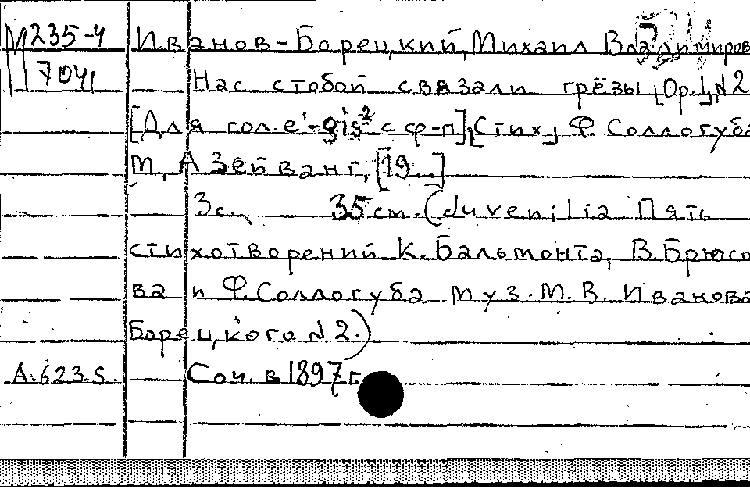 М235-4 Иванов-Борецкий, Михаил Владимиров
704 Нас с тобой связали грёзы, [Ор.1,] №2
[Для гол. e'-gis² с ф-п], [Стих.] Ф. Соллогуба
М., А Зейванг, [19..]
3с. 35 см. (Juvenilia Пять
стихотворений К. Бальмонта, В. Брюсо
ва и Ф. Соллогуба муз. М. В. Иванова
Борецкого №2.)
А.623.5. Соч. в 1897 г.